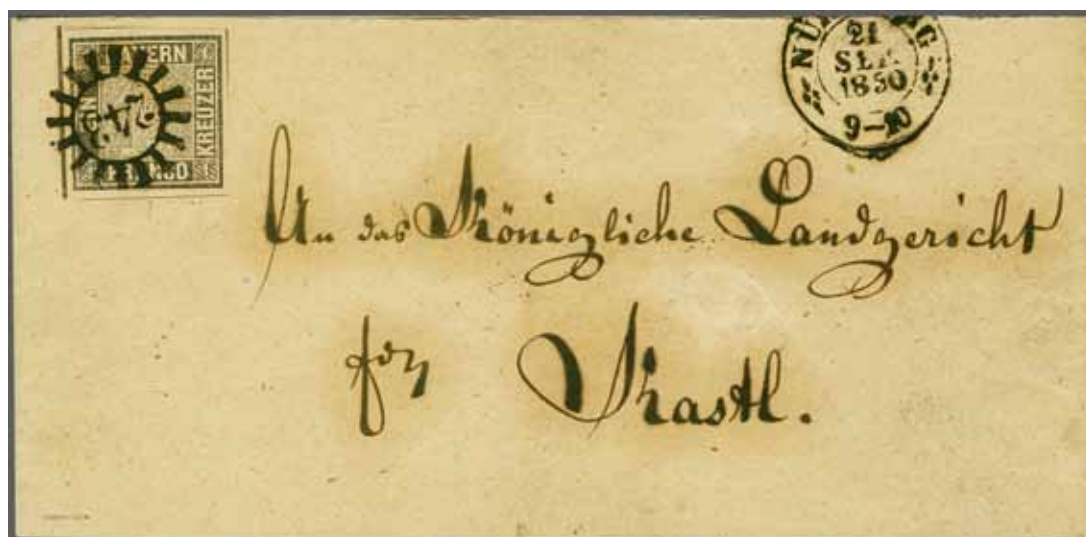 BAYERN
EIN
KREUZER
FRANCO
NÜRNBERG
21
SEP.
1850
9-10
An das Königliche Landgericht
Kastl.